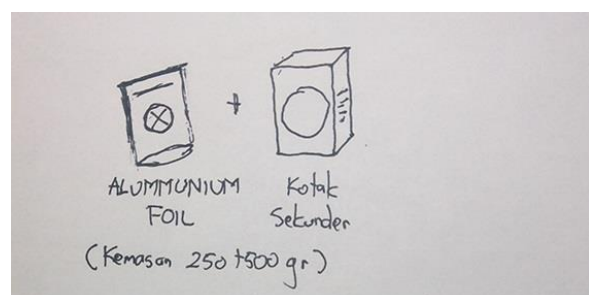 +
ALUMMUNIUM
FOIL
Kotak
Sekunder
(Kemasan 250+500 gr)